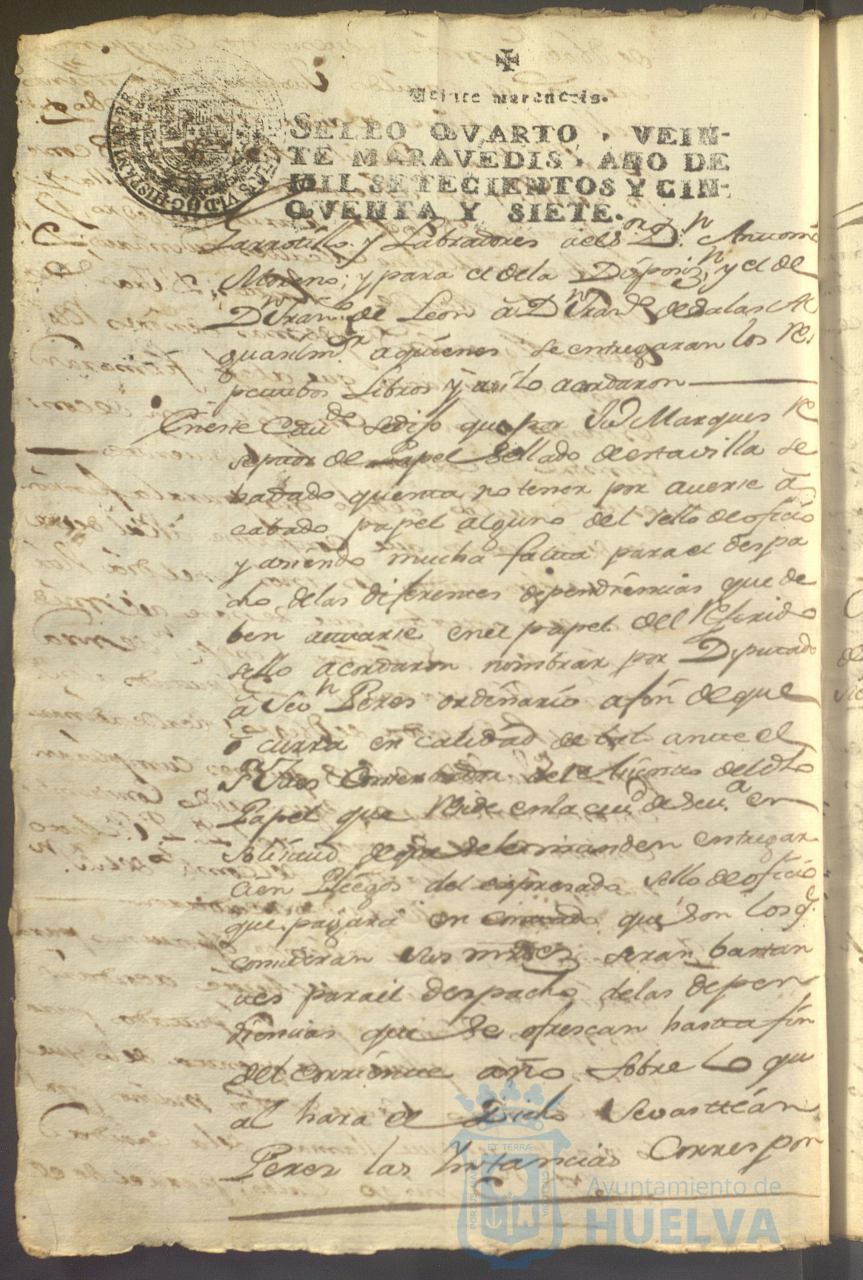 Veinte maravedis.
SELLO QVARTO, VEIN-
TE MARAVEDIS, AÑO DE
MIL SETECIENTOS Y CIN-
QVENTA Y SIETE.
Jarrotillo y Labradores a el Sr. Dn. Antonio
Moreno; y para el de la Disposizn. y el de
Dn. Franco. de Leon â Dn. Franco. de Salas Al
guasilmr. a quienes se entregaran los Res
pectivos Libros y asi lo acordaron
En este Cavdo. se dijo que por Marques Re
septor de Papel Sellado de esta villa se
ha dado quenta no tener por averse â
cabado papel alguno del sello de ofisio
y asiendo mucha falta para el despa
cho de las diferentes dependensias que de
ben actuarse en el papel del Referido
sello acordaron nombrar por Diputado
â Sevn. Peres ordenario a fin de que
ôcurra en calidad de tal ante el
del dho
Papel que Reside en la ciud. de Seva. en
solisitud de que se le manden entregar
cien Pliegos del expresado sello de ofisio
que pagará en contado que son los q.
consideran sus mrdes. seran bastan
tes para el despacho de las depen
diensias que se ofrescan hasta fin
del corriente año sobre lo qu
al hara el dicho Sevasttian
Peres las Ynstancias Correspon
ET TERRAE
Ayuntamiento de
HUELVA